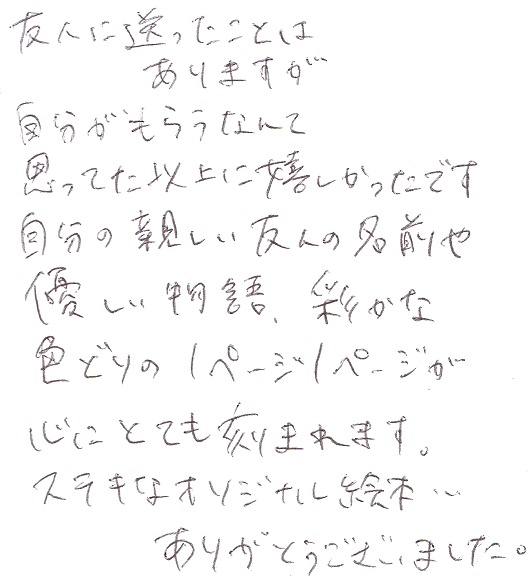 友人に送ったことは
ありますが
自分がもらうなんて
思ってた以上に嬉しかったです
自分の親しい友人の名前や
優しい物語、彩かな
色どりの1ページ1ページが
心にとても刻まれます。
ステキなオリジナル絵本…
ありがとうございました。